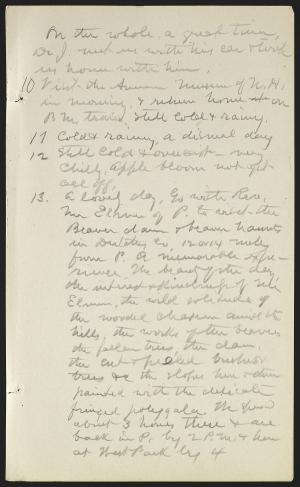 On the whole, a great time,
Dr J. met us with his car & took
us home with him.
10 Visit the Museum of N. H.
in morning, & return home on
P.M. train, Still cold & rainy.
11 Cold & rainy, a dismal day
12 Still cold & overcast - very
chilly, Apple bloom not yet
all off,
13. A lovely day, Go with Rev.
Mr Elmer of P. to visit the
Beaver dam & beaver haunts
in Dutchess Co, 12 or 14 miles
from P. A memorable expe-
rience, The beauty of the day,
the interest & kindness of Mr
Elmer, the wild solitude of
the wooded chasm amid the
hills, the works of the beavers
the fallen trees, the dam,
the cut & peeled brushes
trees &c the slopes here & there
painted with the delicate
fringed polygala. We spend
about 3 hours there & are
back in P. by 2 P.M. & home
at West Park by 4